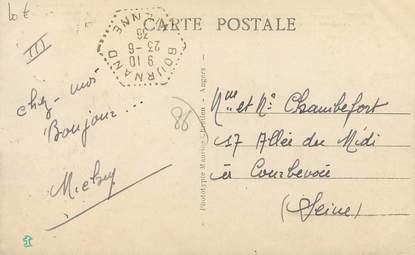 10 €
CARTE POSTALE
III
BOURNAND
VIENNE
9 10
23-6
35
chez-moi
Bonjour...
86
Phototypie Maurice Chrétien - Angers -
Mme et Mr Chambefort
17 Allée du Midi
à Courbevoie
(Seine)